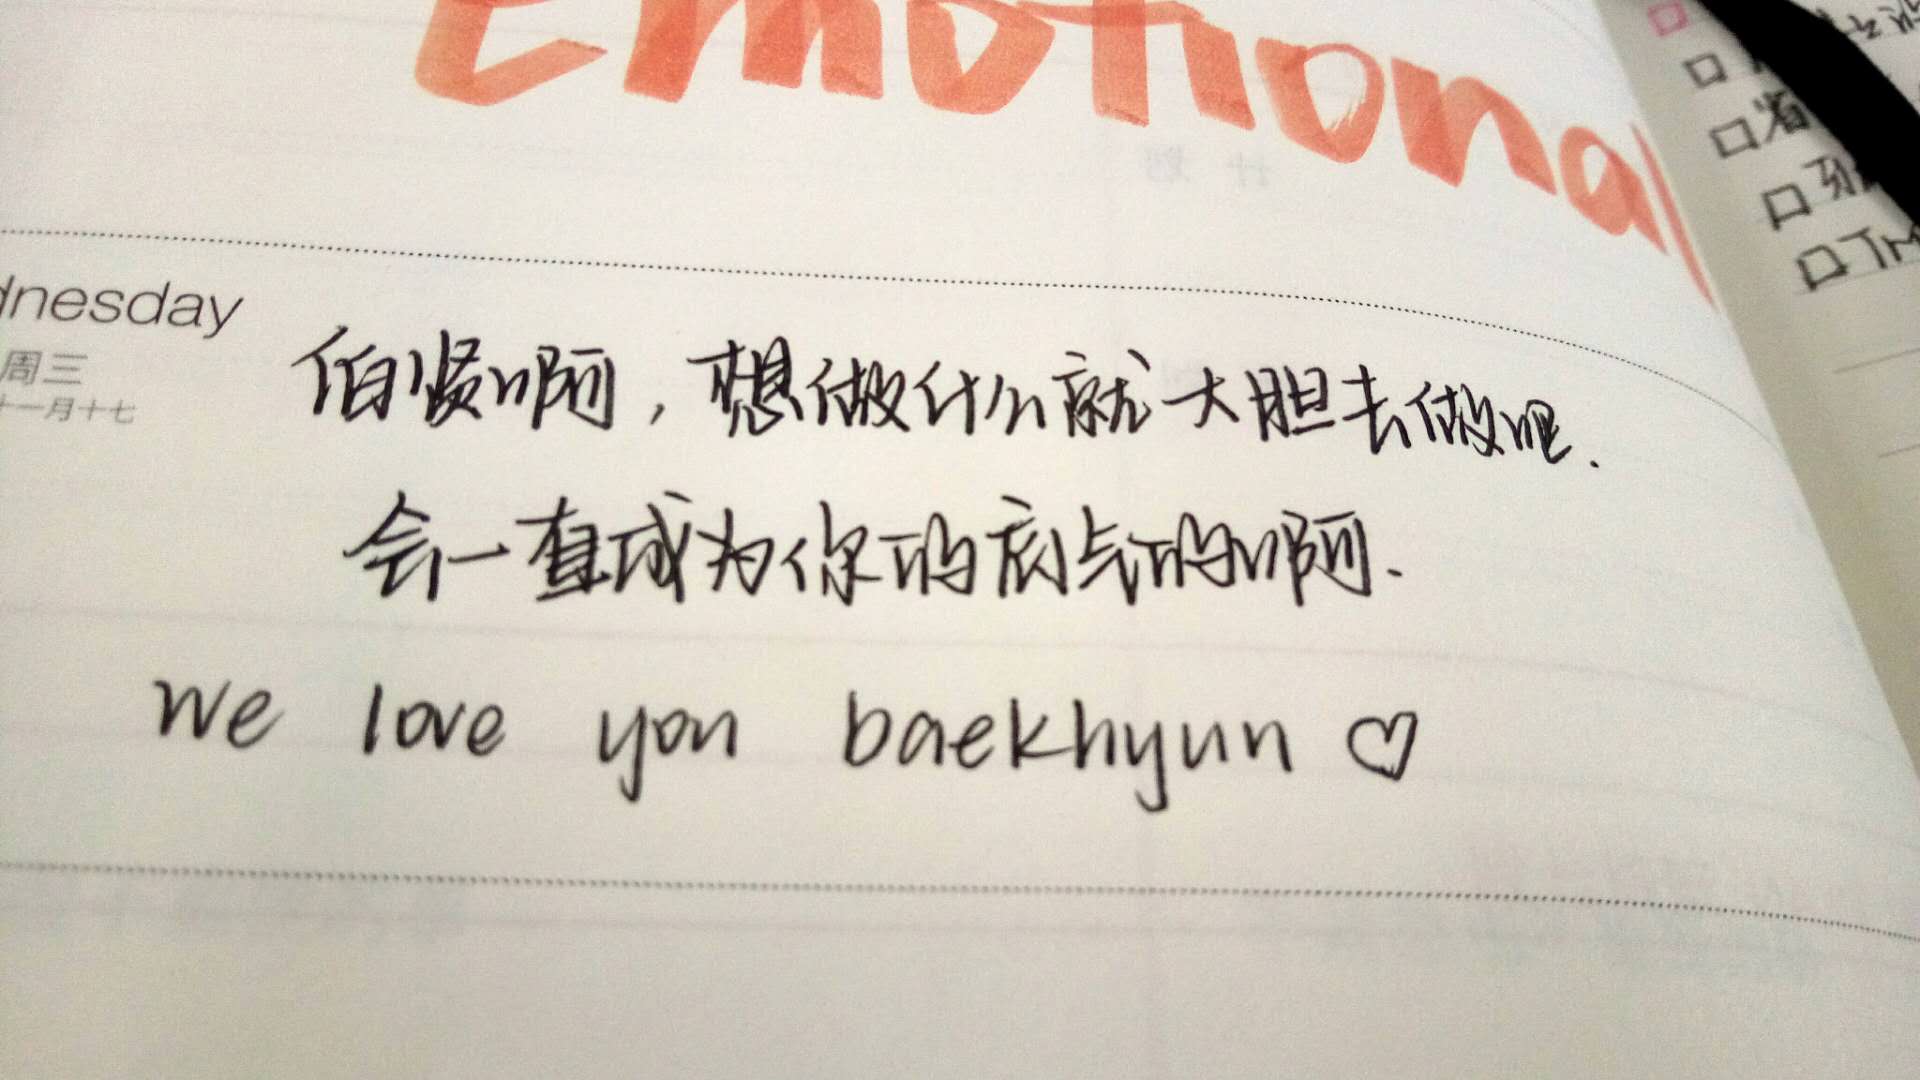 Emotional
dnesday
周三
十一月十七
伯贤啊，想做什么就大胆去做吧.
会一直成为你的底气的啊.
we love you baekhyun ♡
计 划
□
□
□ 省
□
□ TM